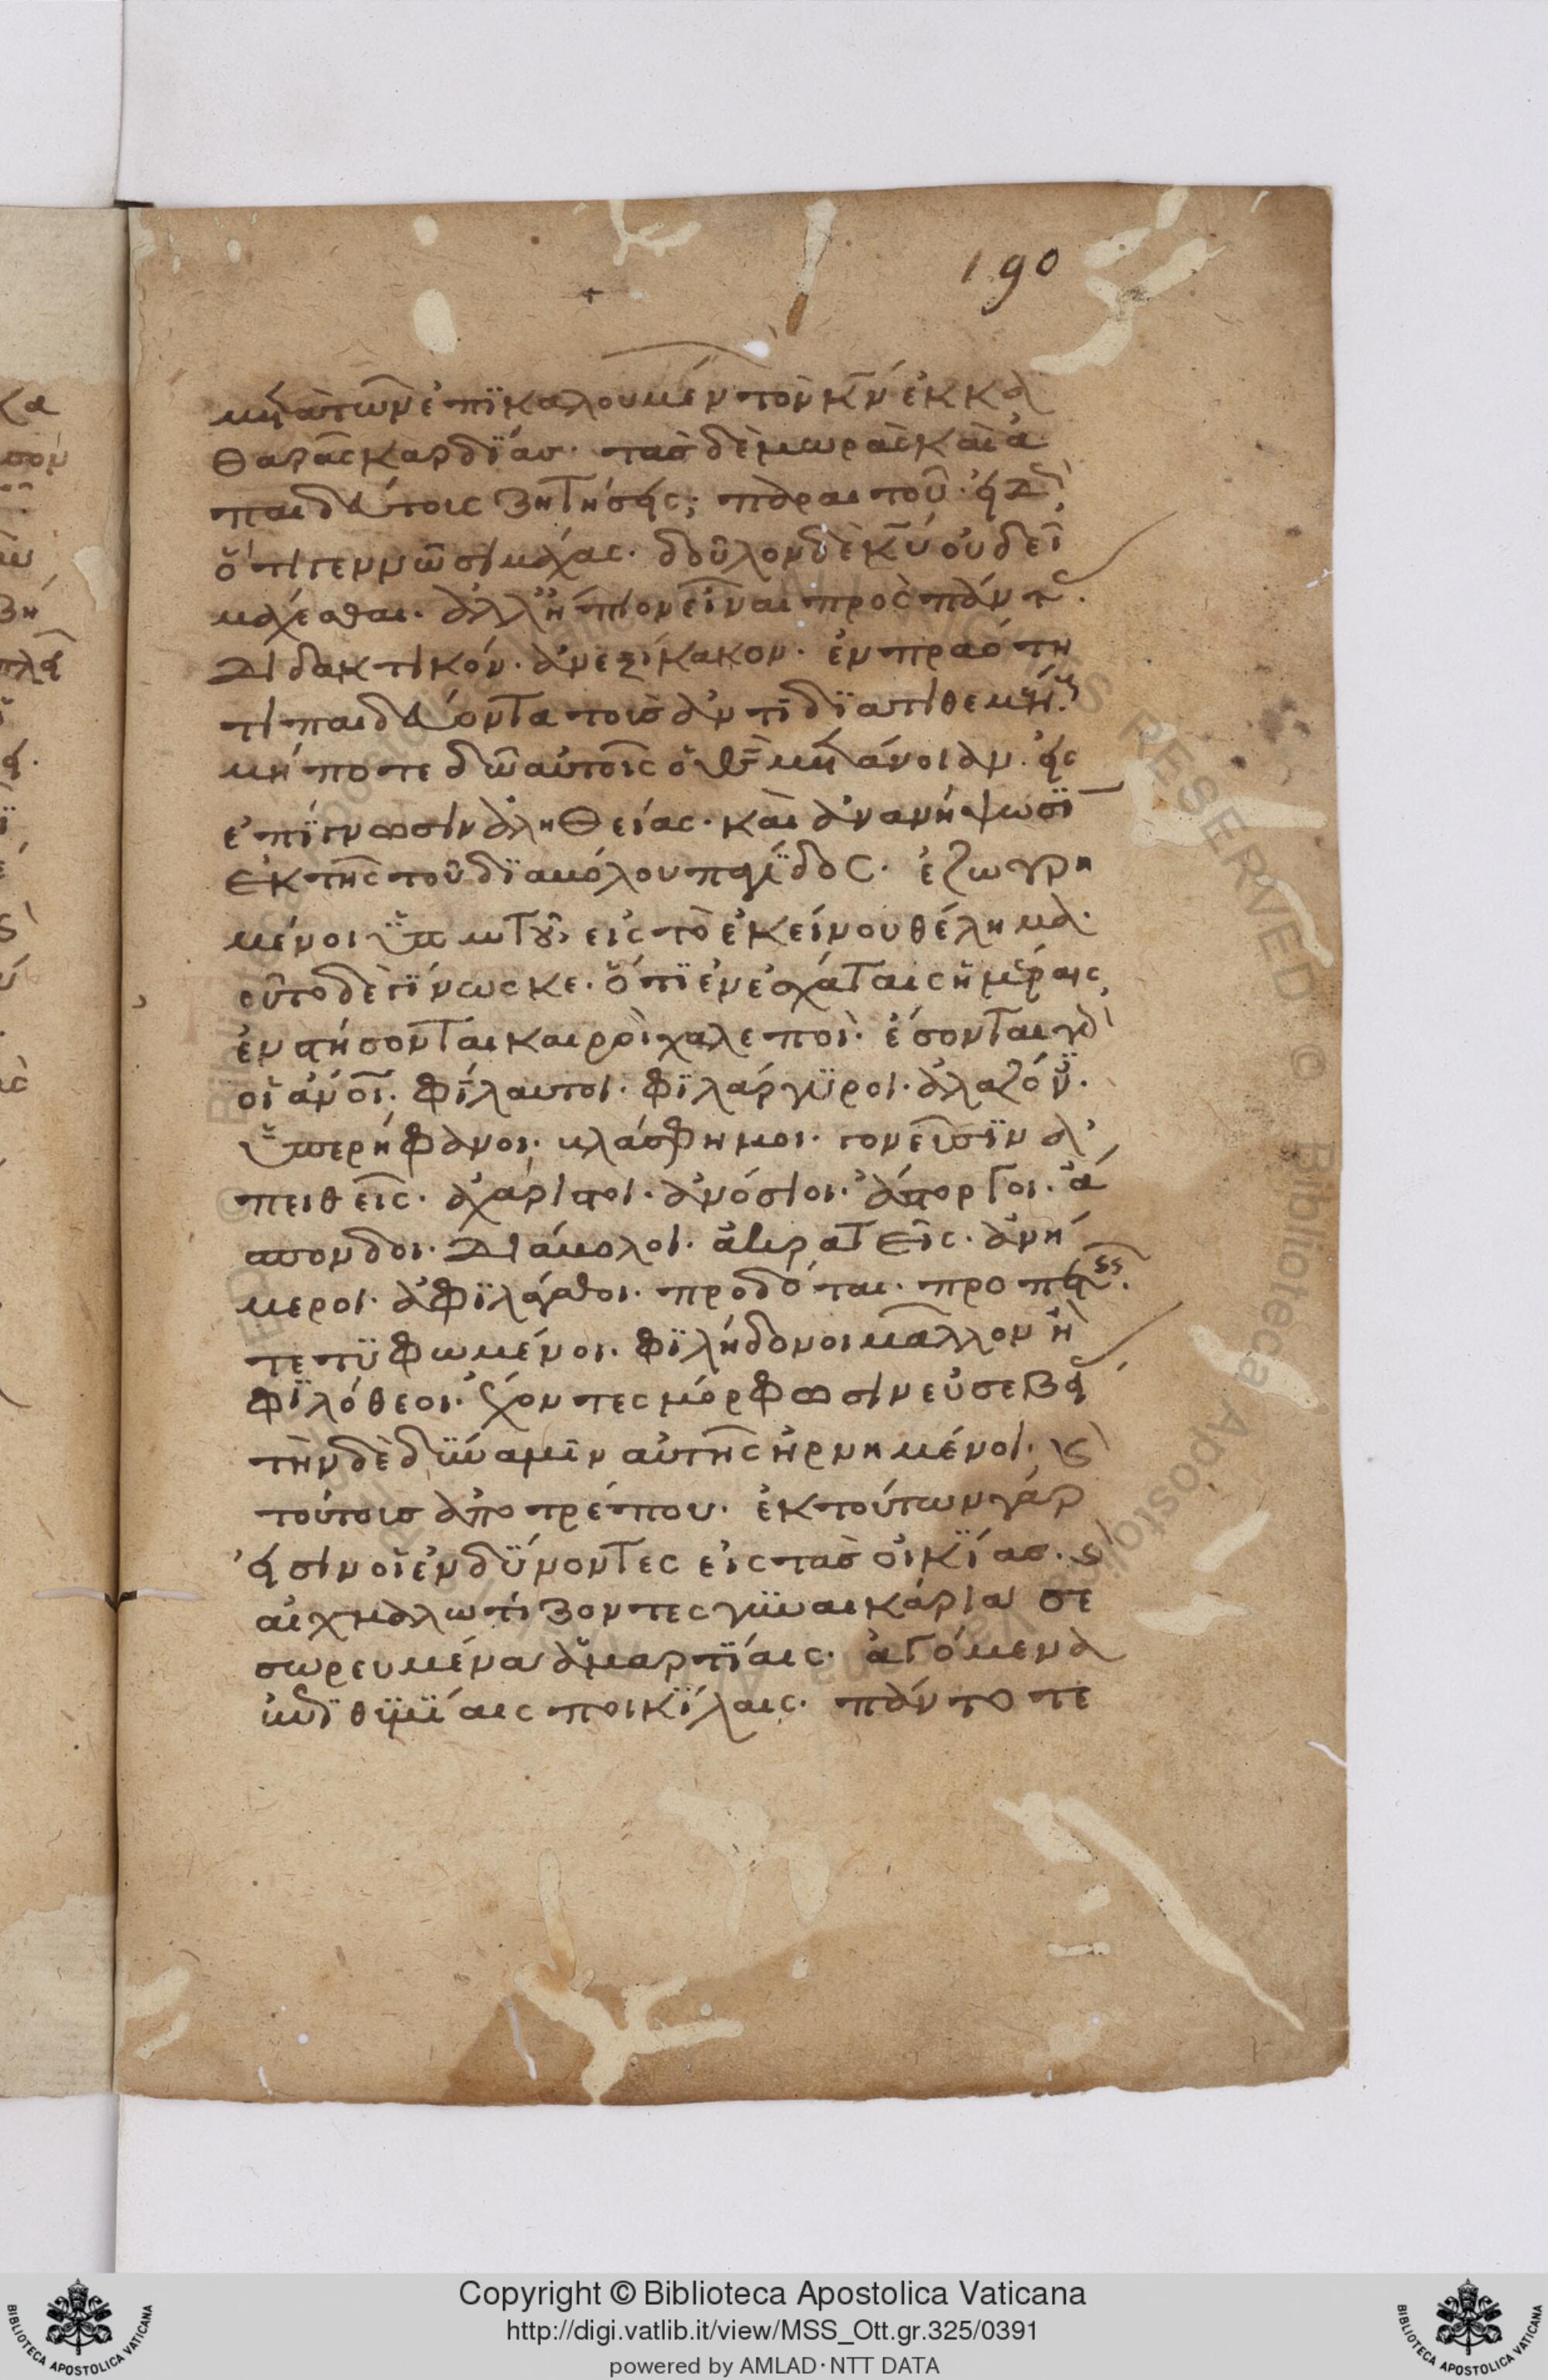 190
μετὰ τῶν ἐπϊκαλουμέν τὸν κν ἐκ κα
θαρᾶς καρδΐας· τὰς δὲ μωρὰς καὶ ἀ
παιδεύτοις ζητήσεις; παραιτοῦ· εἰδ
ὅτι γεννῶσι μάχας· δοῦλον δὲ κυ οὐ δεῖ
μάχεσθαι· ἀλλ ἤπιον εἶναι πρὸς πάντ·
διδακτικόν· ἀνεξίκακον· ἐν πραότη
τι παιδεύοντα τοὺς ἀντιδϊατιθεμέν·
μήποτε δῶ αὐτοῖς ὁ θς μετάνοιαν· εἰς
ἐπΐγνωσιν ἀληθείας· καὶ ἀνανήψωσϊ
ἐκ τῆς τοῦ δϊαβόλου παγΐδος· ἐζωγρη
μένοι ὑπ αυτοῦ, εἰς τὸ ἐκείνου θέλημα·
οῦτο δὲ γΐνωσκε· ὅτϊ ἐν ἐσχάταις ἡμέραις,
ἐνστήσονται καιροὶ χαλεποὶ· ἔσονται γὰρ
οἱ ἄνοι· φΐλαυτοι· φϊλάργϋροι· ἀλαζόν·
ὑπερήφανοι· βλάσφημοι· γονεῦσϊν ἀ
πειθεῖς· ἀχάριστοι· ἀνόσιοι· ἄστοργοι· ἄ
σπονδοι· διάβολοι· ἀκρατεῖς· ἀνή
μεροι· ἀφϊλάγαθοι· προδόται· προπετεῖς·
τετϋφωμένοι· φϊλήδονοι μᾶλλον ἢ
φϊλόθεοι· ἔχοντες μόρφωσιν εὐσεβεί
τὴν δὲ δΰναμιν αὐτῆς ἠρνημένοι· καὶ
τούτοις ἀποτρέπου· ἐκ τούτων γάρ
εἰσιν οἱ ἐνδΰνοντες εἰς τὰς οἰκΐας· καὶ
αἰχμαλωτίζοντες γϋναικάρια σε
σωρευμένα ἁμαρτΐαις· ἀγόμενα
ἐπϊθϋμΐαις ποικΐλαις· πάντοτε
Copyright © Biblioteca Apostolica Vaticana
http://digi.vatlib.it/view/MSS_Ott.gr.325/0391
powered by AMLAD·NTT DATA